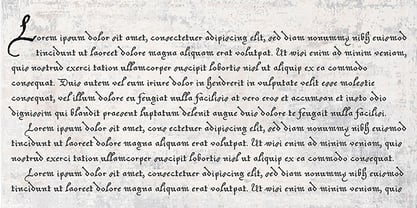 Lorem ipsum dolor sit amet, consectetuer adipiscing elit, sed diam nonummy nibh euismod
tincidunt ut laoreet dolore magna aliquam erat volutpat. Ut wisi enim ad minim veniam, quis
nostrud exerci tation ullamcorper suscipit lobortis nisl ut aliquip ex ea commodo
consequat. Duis autem vel eum iriure dolor in hendrerit in vulputate velit esse molestie
consequat, vel illum dolore eu feugiat nulla facilisis at vero eros et accumsan et iusto odio
dignissim qui blandit praesent luptatum delenit augue duis dolore te feugait nulla facilisi.
Lorem ipsum dolor sit amet, cons ectetuer adipiscing elit, sed diam nonummy nibh euismod
tincidunt ut laoreet dolore magna aliquam erat volutpat. Ut wisi enim ad minim veniam, quis
nostrud exerci tation ullamcorper suscipit lobortis nisl ut aliquip ex ea commodo consequat.
Lorem ipsum dolor sit amet, consectetuer adipiscing elit, sed diam nonummy nibh euismod
tincidunt ut laoreet dolore magna aliquam erat volutpat. Ut wisi enim ad minim veniam, quis